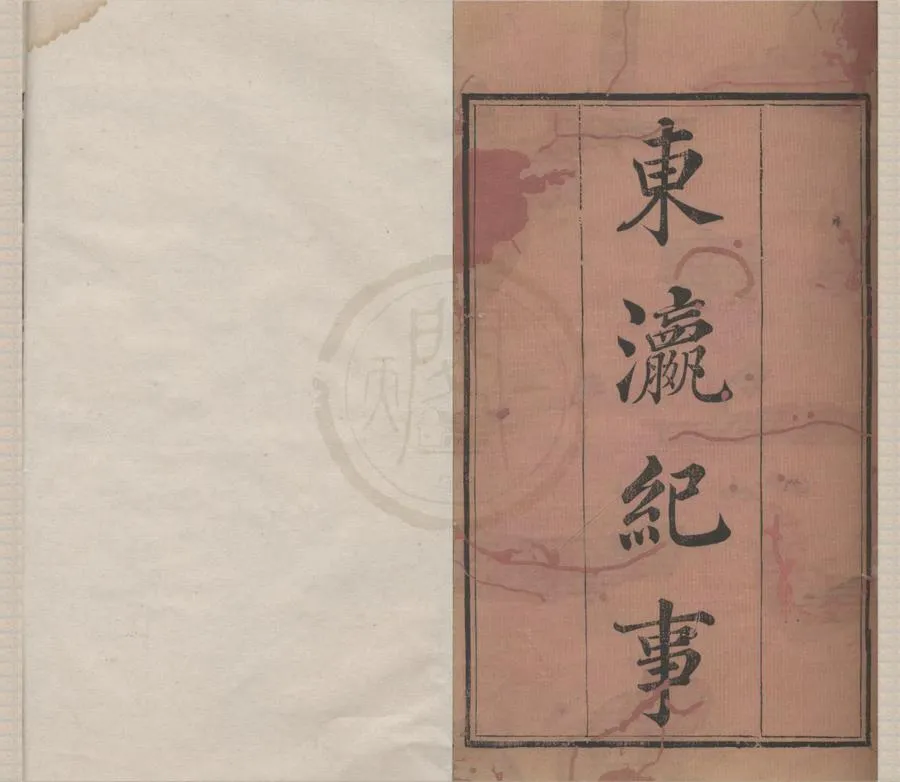 東瀛紀事